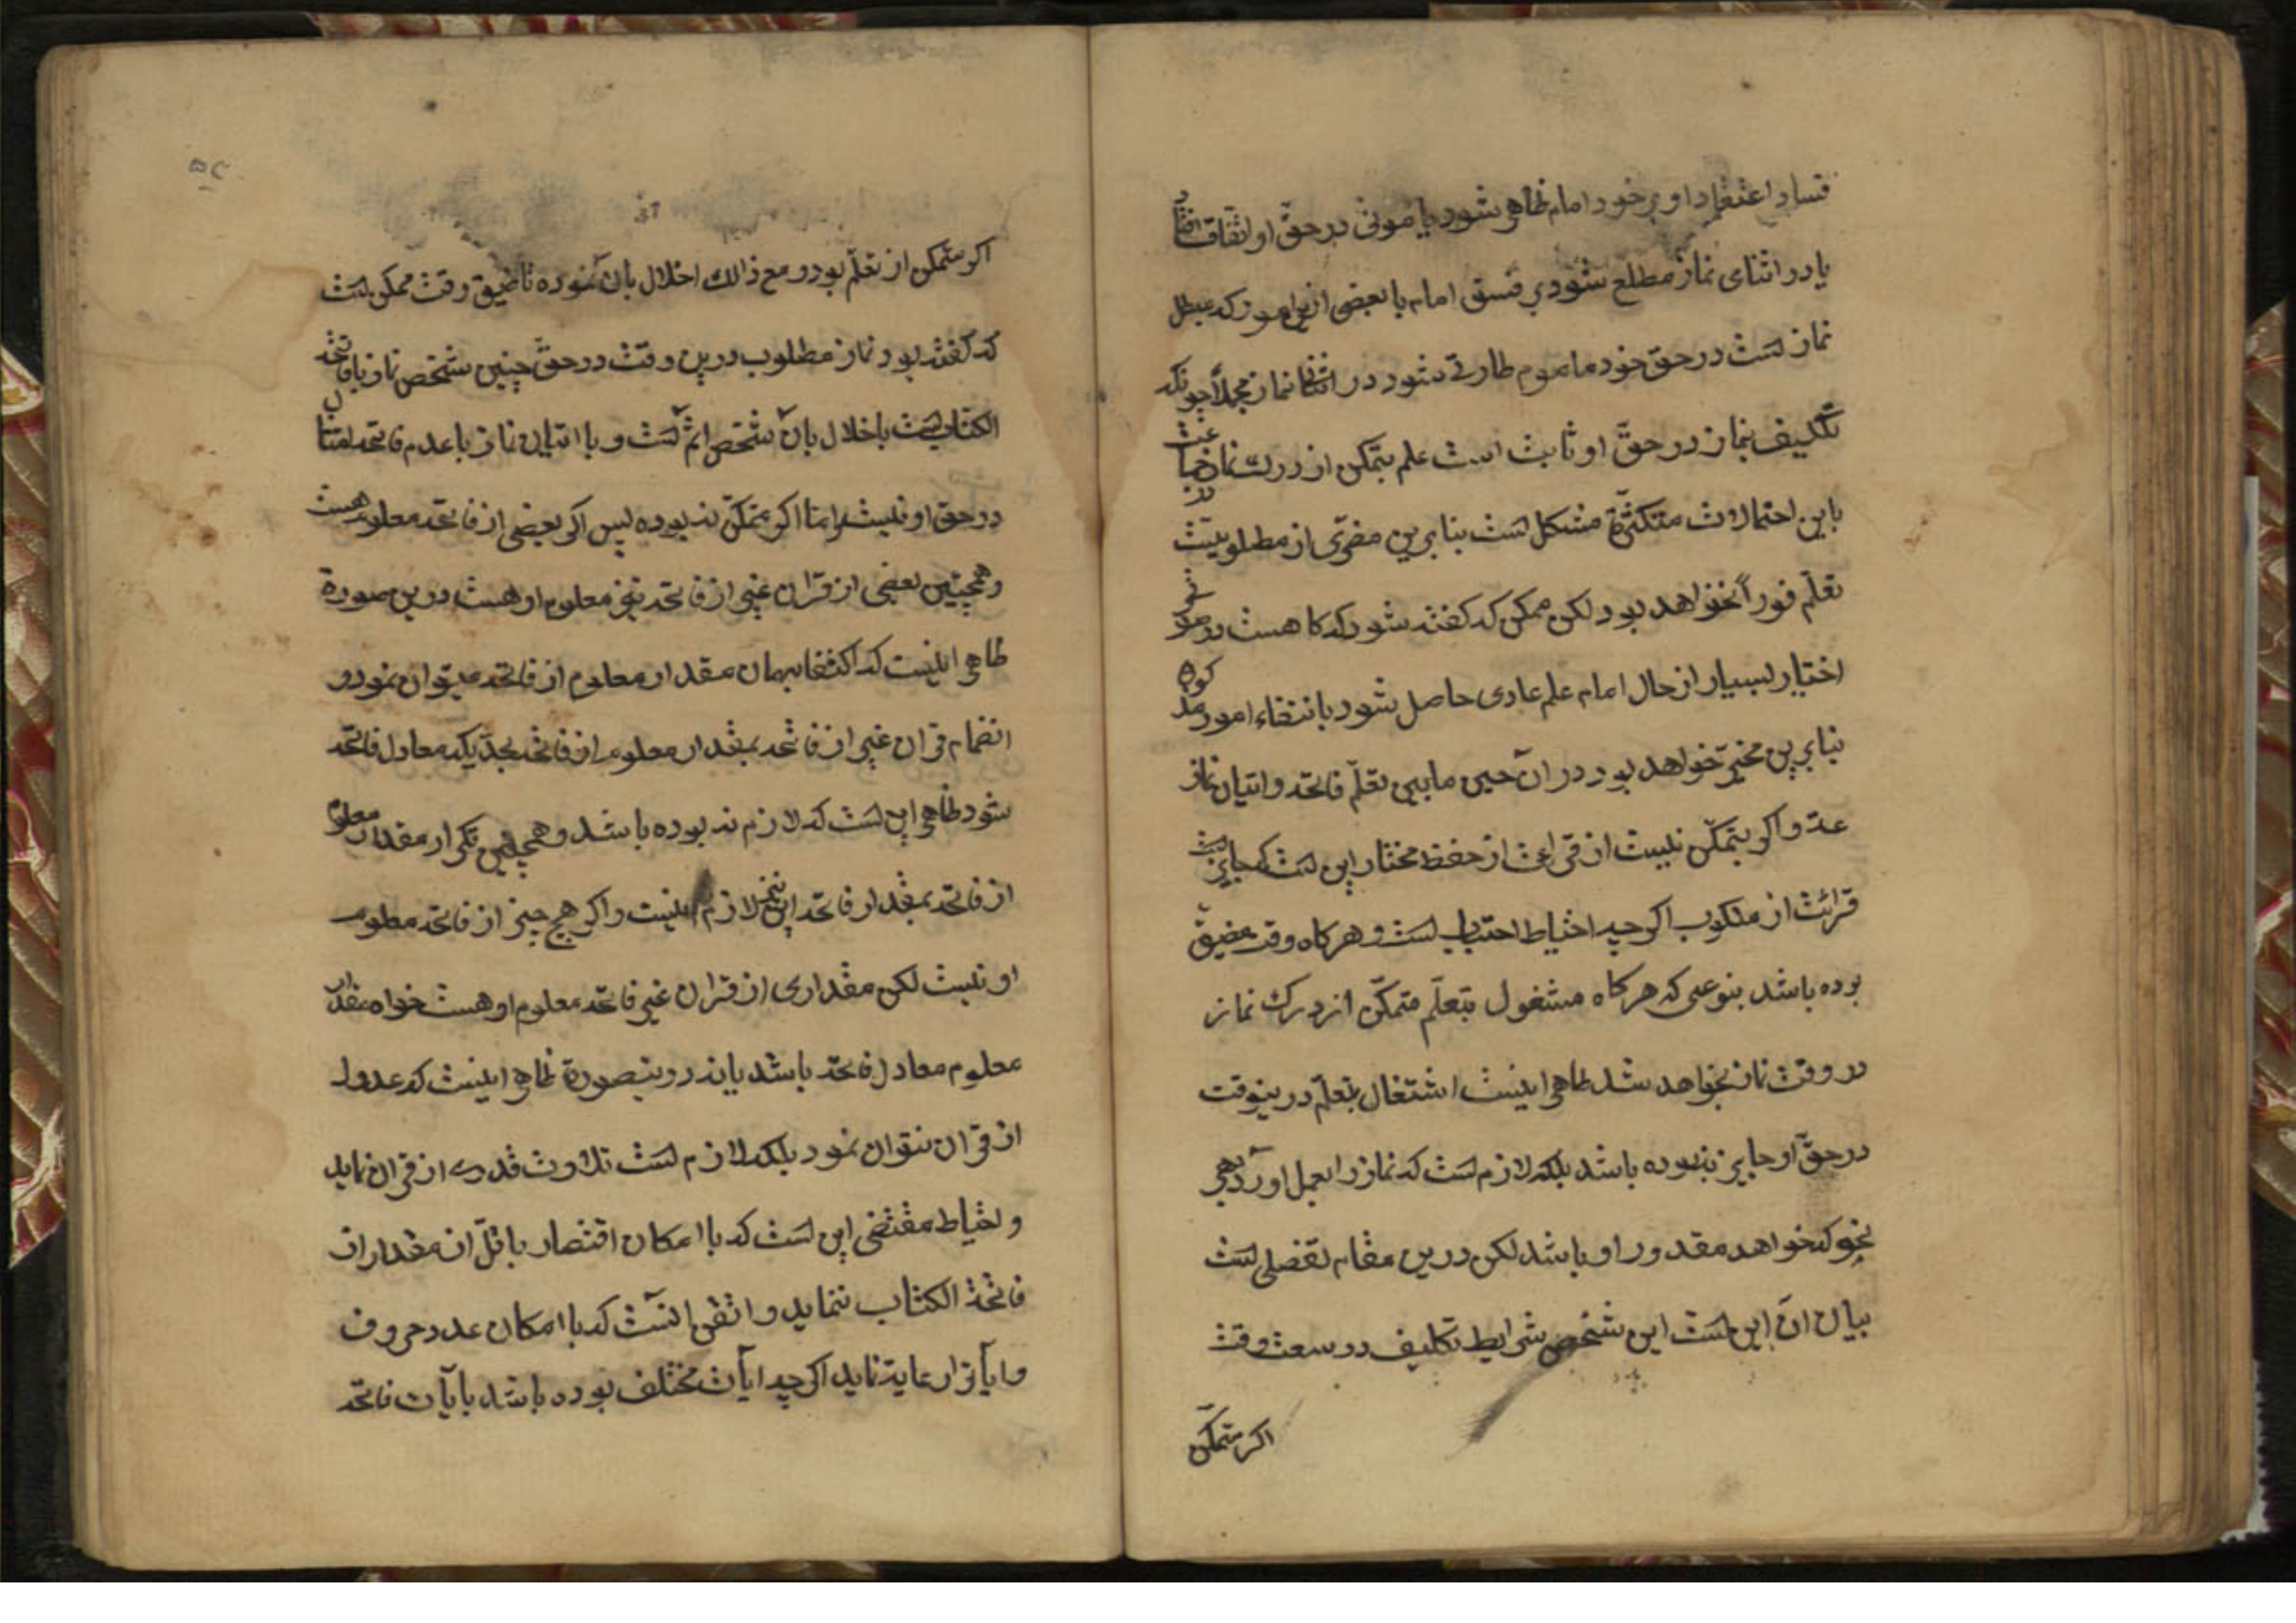 فساد اعتقاد او بر خود امام ظاهر شود یا موتی در حق او اتفاق افتاد
یا در اثنای نماز مطلع شود بر فسق امام یا بعضی ازین امور که مبطل
نماز است در حق خود ماموم طاری شود در اثنای نماز مجملا چونکه
تکلیف بنماز در حق او ثابت است علم بتمکن از درک نماز جماعت
باین احتمالات متکثرة مشکل است بنابرین مفری از مطلوبیت
تعلم فورا نخواهد بود لکن ممکن که گفته شود که کاهست در مو
اختیار بسیار از حال امام علم عادی حاصل شود بانتفاء امور مذکوره
بنابرین مخیر خواهد بود در ان حین مابین تعلم فاتحه و اتیان نماز
عة و اکر بتمکن نیست از قراءت از حفظ مختار این است که جایز است
قرائت از مکتوب اکر چه احتیاط اجتناب است و هر کاه وقت مضیق
بوده باشد بنوعی که هر کاه مشغول بتعلم متمکن از درک نماز
در وقت نماز نخواهد شد ظاهر اینست اشتغال بتعلم درینوقت
در حق او جایز نبوده باشد بلکه لازم است که نماز را بعمل اورد بهر
نحو که خواهد مقدور او باشد لکن درین مقام تفصلی است
بیان ان این است این شخص شرایط تکلیف در سعت وقت
اکر متمکن
۵۲
اکر متمکن از تعلم بود و مع ذالک اخلال بان نموده تا ضیق وقت ممکن است
که گفته بود نماز مطلوب درین وقت در حق چنین شخص نماز با فاتحة
الکتاب است باخلال بان شخص اثم است و با اتیان نماز با عدم فاتحه امتثال
در حق او نیست و اما اکر متمکن نه بوده پس اکر بعضی از فاتحه معلوم هست
و همچنین بعضی از قران غیر از فاتحه نیز معلوم او هست درین صورة
ظاهر اینست که اکتفا بهمان مقدار معلوم از فاتحه میتوان نمود و
انضمام قران غیر از فاتحه بمقدار معلوم از فاتحه بحدیکه معادل فاتحه
شود ظاهر این است که لازم نه بوده باشد و همچنین تکرار مقدار معلوم
از فاتحه بمقدار فاتحه این نیز لازم نیست و اکر هیچ چیز از فاتحه معلوم
او نیست لکن مقداری از قران غیر فاتحه معلوم او هست خواه مقدار
معلوم معادل فاتحه باشد یا نه درینصورة ظاهر اینست که عدول
از قران نتوان نمود بلکه لازم است تلاوت قدری از قران نماید
و احتیاط مقتضی این است که با امکان اقتصار باقل از مقدار از
فاتحة الکتاب ننماید و اتقی انست که با امکان عدد حروف
و ایات را رعایة نماید اکر چه ایات مختلف بوده باشد بایات فاتحه